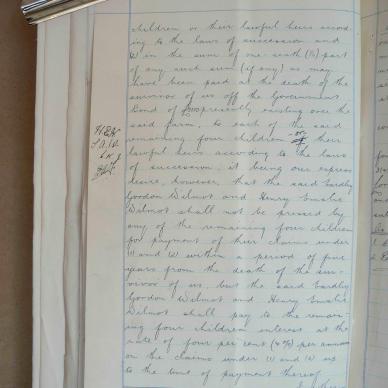 children or their lawful heirs accord-
ing to the laws of succession and
(2) in the sum of one-sixth (1/6) part
of any such sum (if any) as may
have been paid at the death of the
survivor of us off the Government
Bond of presently existing over the
said farm, to each of the said
remaining four children or their
lawful heirs according to the laws
of succession, it being our express
desire, however, that the said
Gordon Wilmot and Henry
Wilmot shall not be pressed by
any of the remaining four children
for payment of their claims under
(1) and (2) within a period of five
years from the death of the sur-
vivor of us, but the said
Gordon Wilmot and Henry
Wilmot shall pay to the remain-
ing four children interest at the
rate of four per cent (4%) per annum
on the claims under (1) and (2) as
to the time of payment thereof